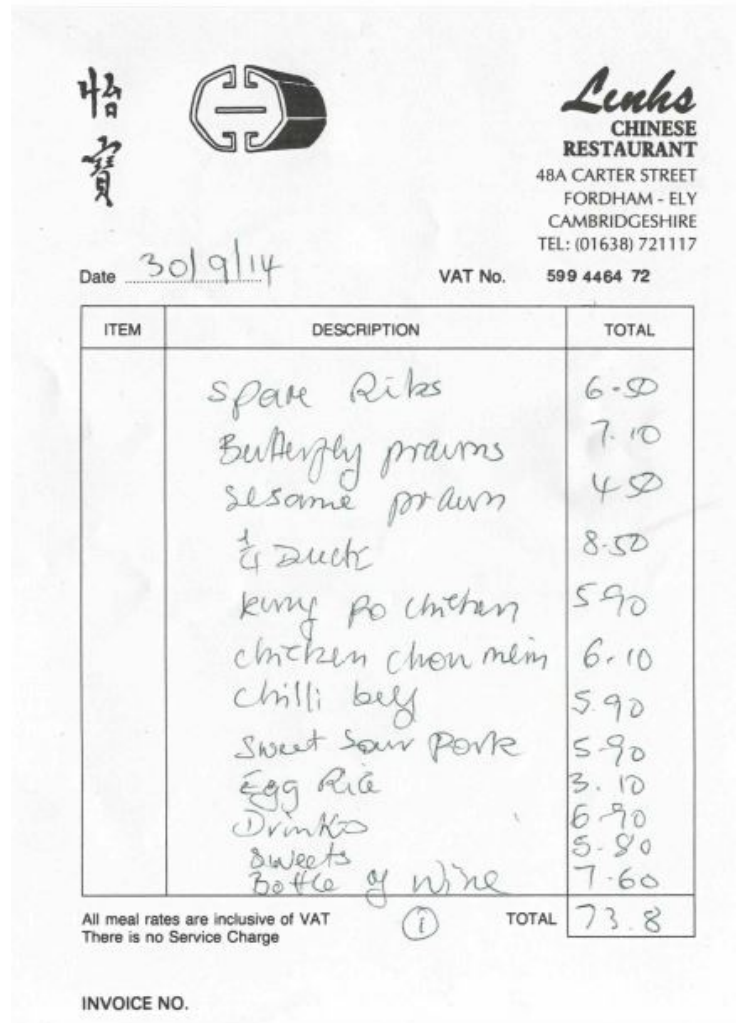 怡寶
Linhs
CHINESE
RESTAURANT
48A CARTER STREET
FORDHAM - ELY
CAMBRIDGESHIRE
TEL: (01638) 721117
Date 30/9/14 VAT No. 599 4464 72
ITEM DESCRIPTION TOTAL
Spare Ribs 6-50
Butterfly prawns 7.10
Sesame prawn 4 50
1/4 Duck 8-50
Kung Po Chicken 5-90
Chicken Chow mein 6.10
Chilli beef 5.90
Sweet Sour Pork 5-90
Egg Rice 3.10
Drinks 6-90
Sweets 5-80
Bottle of Wine 7-60
All meal rates are inclusive of VAT
There is no Service Charge
TOTAL 73.8
INVOICE NO.